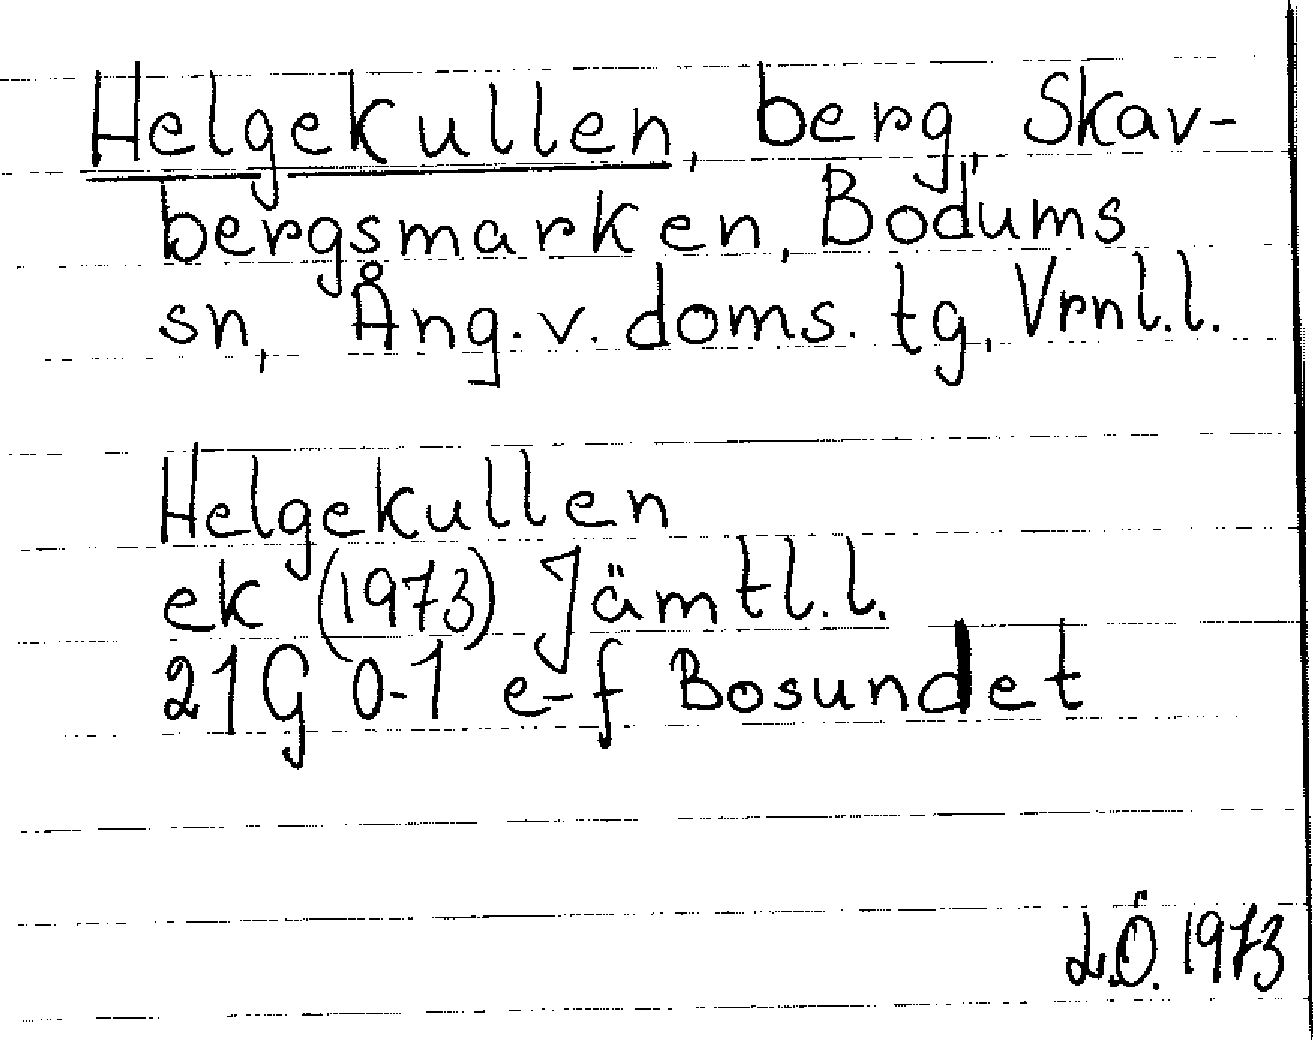 Helgekullen, berg, Skav-
bergsmarken, Bodums
sn, Ång. v. doms. tg, Vrnl. l.
Helgekullen
ek (1973) Jämtl. l.
21G 0-1 e-f Bosundet
L.Ö. 1973